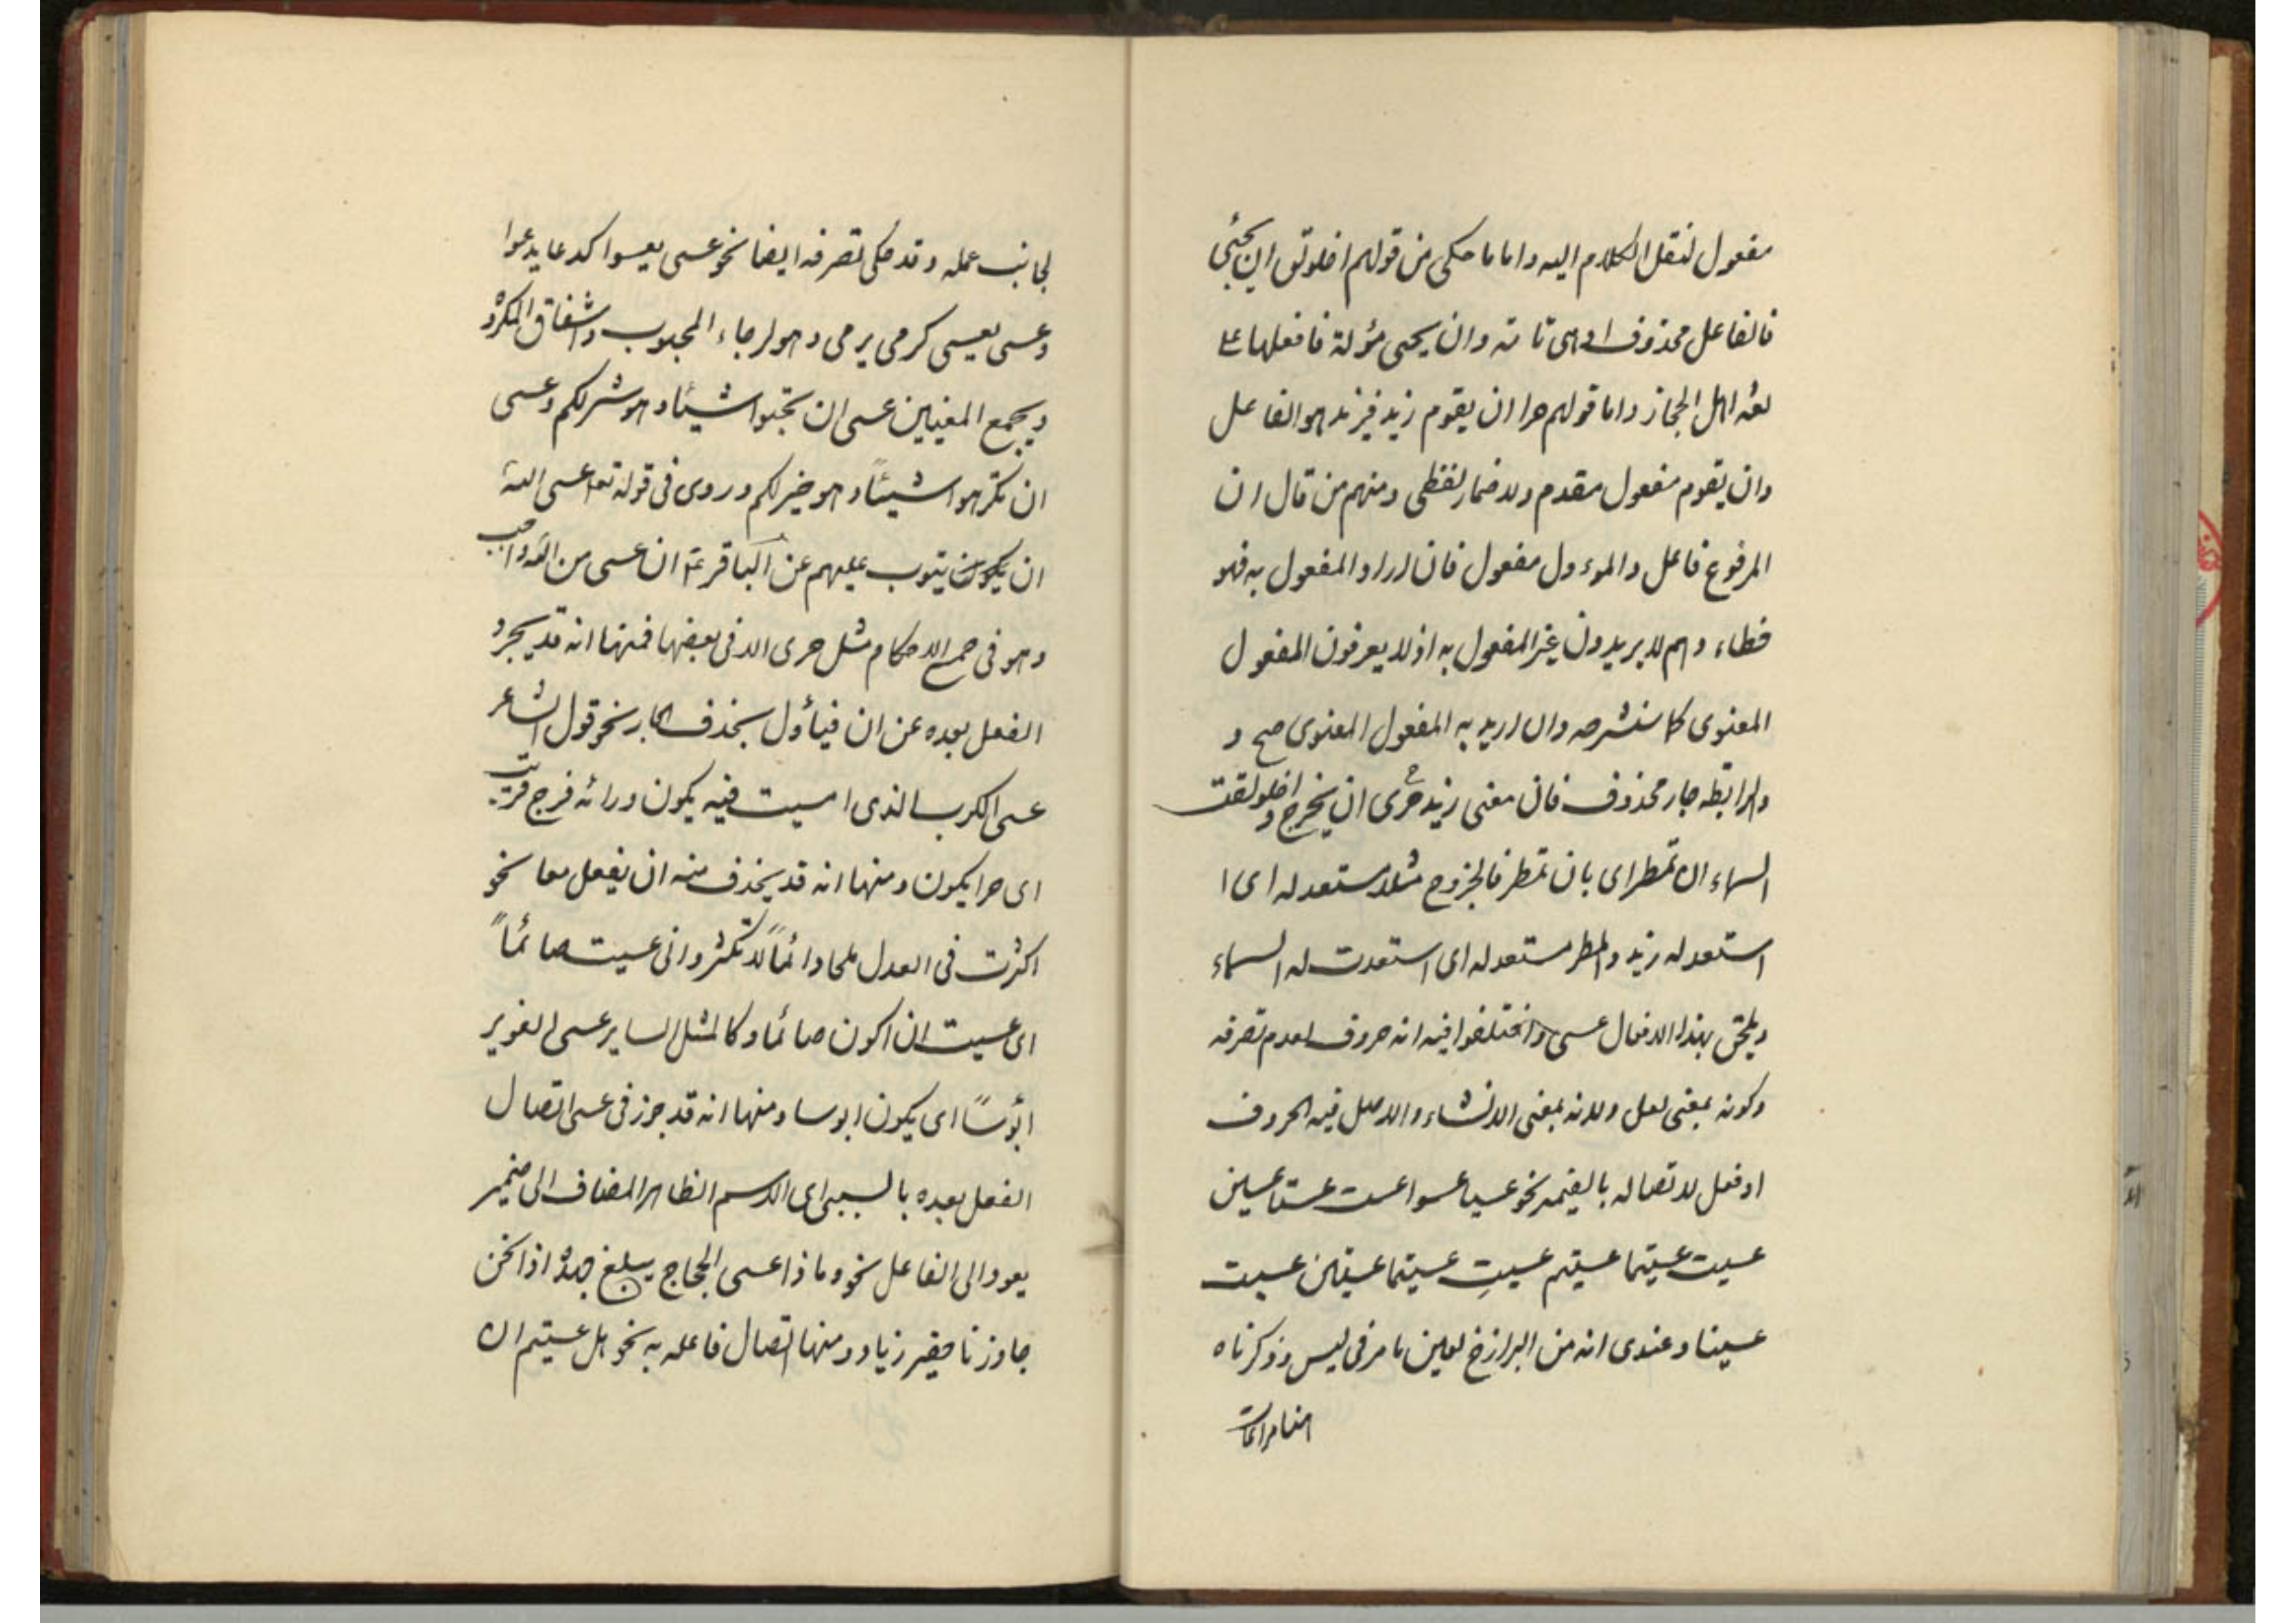 مفعول لنقل الكلام اليه واما ما حكى من قولهم اخلولق ان يجئى
فالفاعل محذوف او هى تامة وان يجئى مؤلة فافعلها على
لغة اهل الحجاز واما قولهم حرا ان يقوم زيد فزيد هو الفاعل
وان يقوم مفعول مقدم ولا ضمار لفظى ومنهم من قال ان
المرفوع فاعل والموءول مفعول فان اراد المفعول به فهو
خطاء وهم لا يريدون غير المفعول به اذ لا يعرفون المفعول
المعنوى كما سنشرحه وان اريد به المفعول المعنوى صح و
والرابطه جار محذوف فان معنى زيد حرى ان يخرج و اخلولقت
السماء ان تمطر اى بان تمطر فالخروج مثلا مستعد له اى ا
استعد له زيد والمطر مستعد له اى استعدت له السماء
ويلحق بهذا الافعال عسى واختلفوا فيه انه حروف لعدم تصرفه
وكونه بمعنى لعل ولانه بمعنى الانشاء والاصل فيه الحروف
او فعل لاتصاله بالضمير نحو عسيا عسوا عست عستا عسين
عسيت عسيتما عسيتم عسيتِ عسيتما عسيتن عسيت
عسينا وعندى انه من البرازخ لعين ما مر فى ليس وذكرناه
لجانب عمله وقد حكى تصرفه ايضا نحو عسى يعسوا كدعا يدعوا
وعسى يعسى كرمى يرمى وهو لرجاء المحبوب واشفاق المكروه
ويجمع المغيين عسى ان تحبوا شيئا وهو شر لكم وعسى
ان تكرهوا شيئاً وهو خير لكم وروى فى قوله تعا عسى الله
ان يكون يتوب عليهم عن الباقر ع ان عسى من الله واجب
وهو فى جميع الاحكام مثل حرى الا فى بعضها فمنها انه قد يجرد
الفعل بعده عن ان فيأول بحذف الجار نحو قول الشاعر
عسى الكرب الذى امسيت فيه يكون ورائه فرج قريب
اى حرا يكون ومنها انه قد يحذف منه ان يفعل معا نحو
اكثرت فى العدل ملحا دائماً لا تكثر وانى عسيت صائماً
اى عسيت ان اكون صائما وكالمثل الساير عسى الغوير
ابؤساً اى يكون ابوسا ومنها انه قد جوز فى عسى اتصال
الفعل بعده بالسببى اى الاسم الظاهر المضاف الى ضمير
يعود الى الفاعل نحو وما ذا عسى الحجاج يبلغ جهده اذا نحن
جاوزنا حفير زياد ومنها اتصال فاعله به نحو هل عسيتم ان